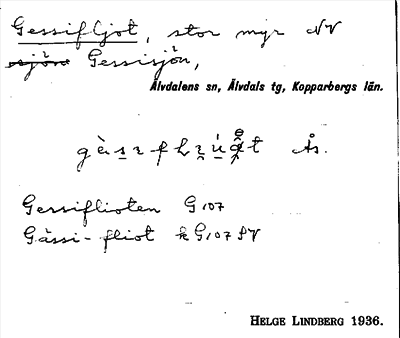 Gessifljot, stor myr NV
sjön Gessisjön,
Älvdalens sn, Älvdals tg, Kopparbergs län.
Ås.
Gessiflioten G 107
Gässi-fliot k G 107 SV
HELGE LINDBERG 1936.